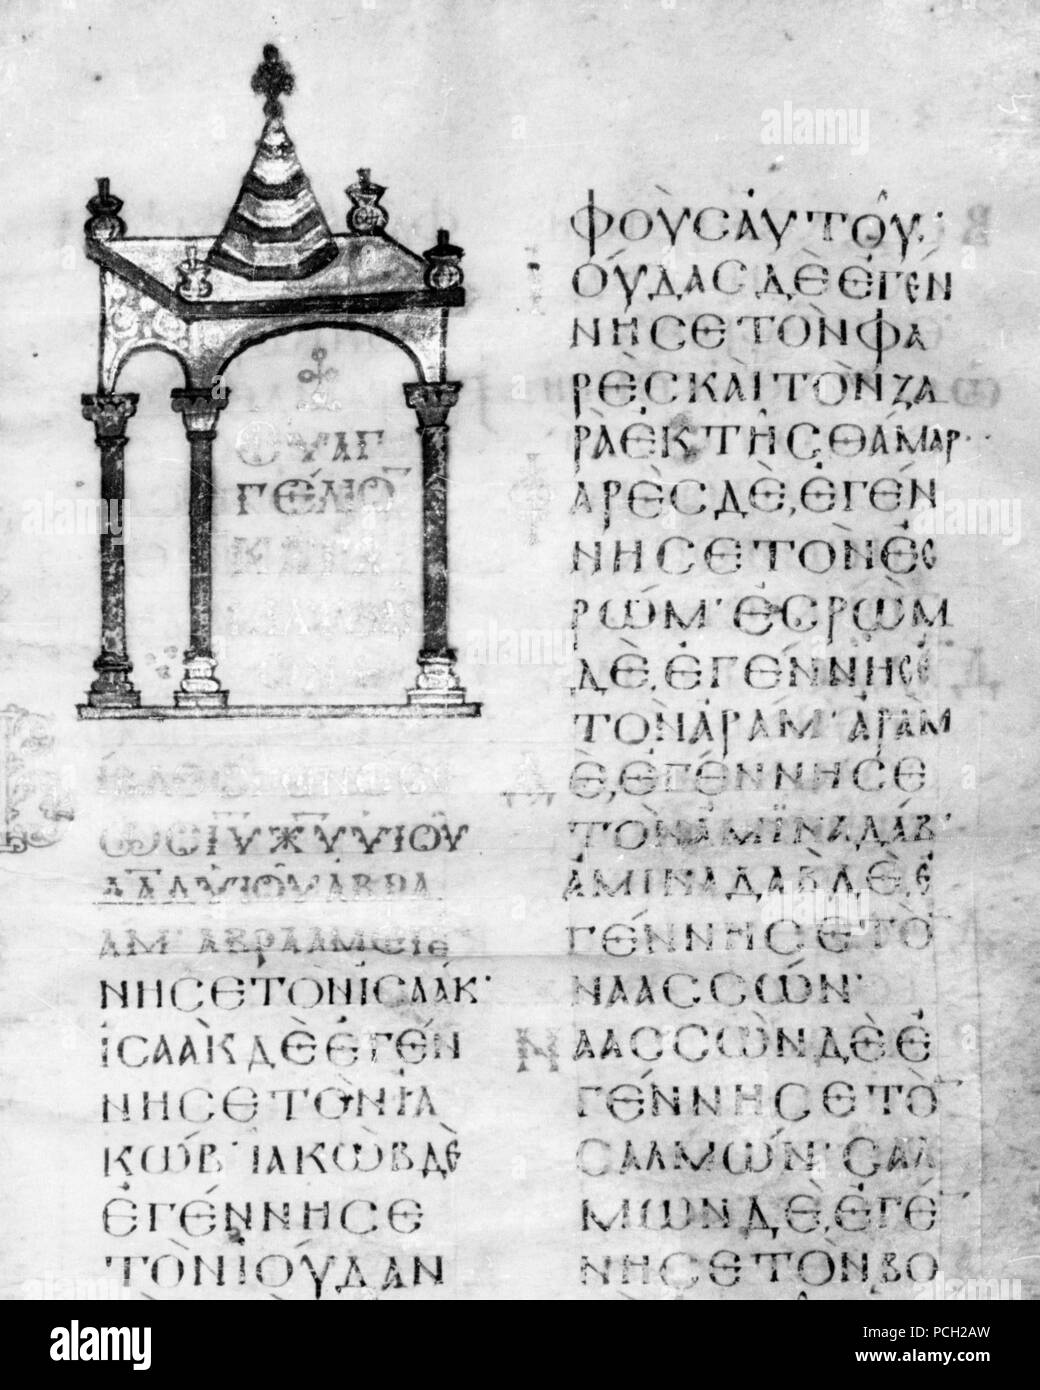 ΕΥΑΓ
ΓΕΛΙΟ̅
ΚΑΤΑ
ΩCΙ̅Υ̅Χ̅Υ̅ΥΙΟΥ
Δ̅Α̅Δ̅ΥΙΟΥΑΒΡΑ
ΑΜ· ΑΒΡΑΑΜΕΓΕ
ΝΝΗCΕΤΟΝΙCΑΑΚ·
ΙCΑΑΚΔΕΕΓΕΝ
ΝΗCΕΤΟΝΙΑ
ΚΩΒ· ΙΑΚΩΒΔΕ
ΕΓΕΝΝΗCΕ
ΤΟΝΙΟΥΔΑΝ
ΦΟΥCΑΥΤΟΥ·
ΟΥΔΑCΔΕΕΓΕΝ
ΝΗCΕΤΟΝΦΑ
ΡΕCΚΑΙΤΟΝΖΑ
ΡΑΕΚΤΗCΘΑΜΑΡ·
ΑΡΕCΔΕ,ΕΓΕΝ
ΝΗCΕΤΟΝΕC
ΡΩΜ· ΕCΡΩΜ
ΔΕ,ΕΓΕΝΝΗCΕ
ΤΟΝΑΡΑΜ· ΑΡΑΜ
ΔΕ,ΕΓΕΝΝΗCΕ
ΤΟΝΑΜΙΝΑΔΑΒ·
ΑΜΙΝΑΔΑΒΔΕ,Ε
ΓΕΝΝΗCΕΤΟ̅
ΝΑΑCCΩΝ·
ΝΑΑCCΩΝΔΕΕ
ΓΕΝΝΗCΕΤΟ̅
CΑΛΜΩΝ· CΑΛ
ΜΩΝΔΕ,ΕΓΕ̅
ΝΗCΕΤΟΝΒΟ
alamy
Image ID: PCH2AW
www.alamy.com